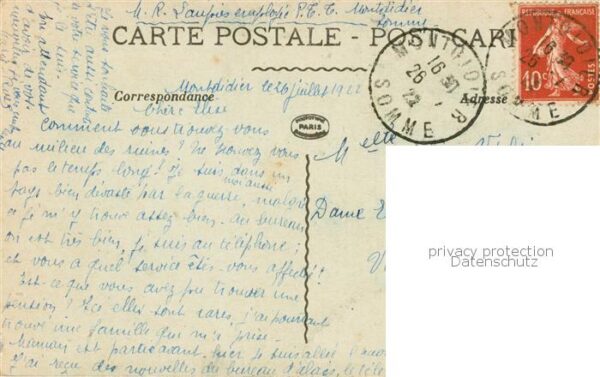 M. R. employée P.T.T. Montdidier
Somme
CARTE POSTALE - POST CAR
Correspondance
Adresse
MONTDIDIER
16 30
26 - 7
22
SOMME
RÉPUBLIQUE FRANÇAISE
10c
POSTES
PARIS
Montdidier le 26 juillet 1922
Chère
Comment vous trouvez vous
au milieu des ruines ? Ne trouvez vous
pas le temps long ? Je suis dans un
moi aussi
pays bien dévasté par la guerre, malgré
ça je m'y trouve assez bien - au bureau
on est très bien, je suis au téléphone ;
et vous à quel service êtes-vous affectée ?
Est-ce que vous avez pu trouver une
pension ? Ici elles sont rares, j'ai pourtant
trouvé une famille qui m'a prise -
est hier je suis allée
J'ai reçu des nouvelles du bureau
Je vous souhaite
d'être aussi contente
de votre service que
je le suis.
En attendant
de vos
Melle
Dame
privacy protection
Datenschutz